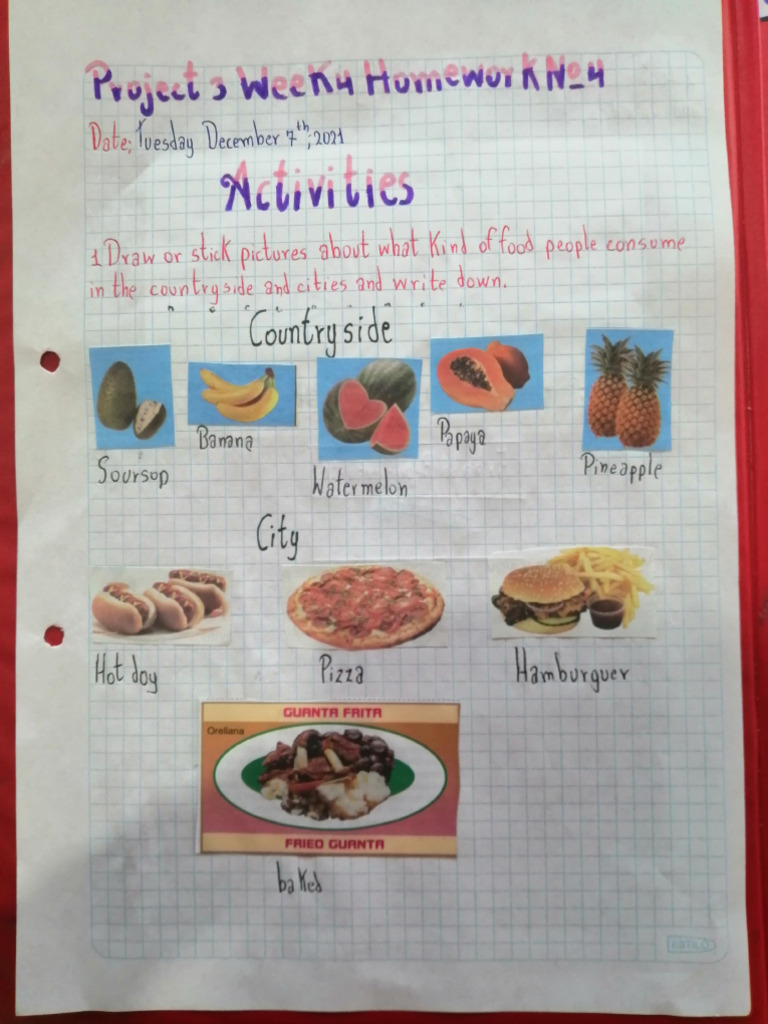 Project 3 Weekly Homework No 4
Date: Tuesday December 7th, 2021
Activities
1 Draw or stick pictures about what kind of food people consume
in the countryside and cities and write down.
Countryside
Soursop
Banana
Watermelon
Papaya
Pineapple
City
Hot dog
Pizza
Hamburguer
GUANTA FRITA
Orellana
FRIED GUANTA
baked
ESTILO